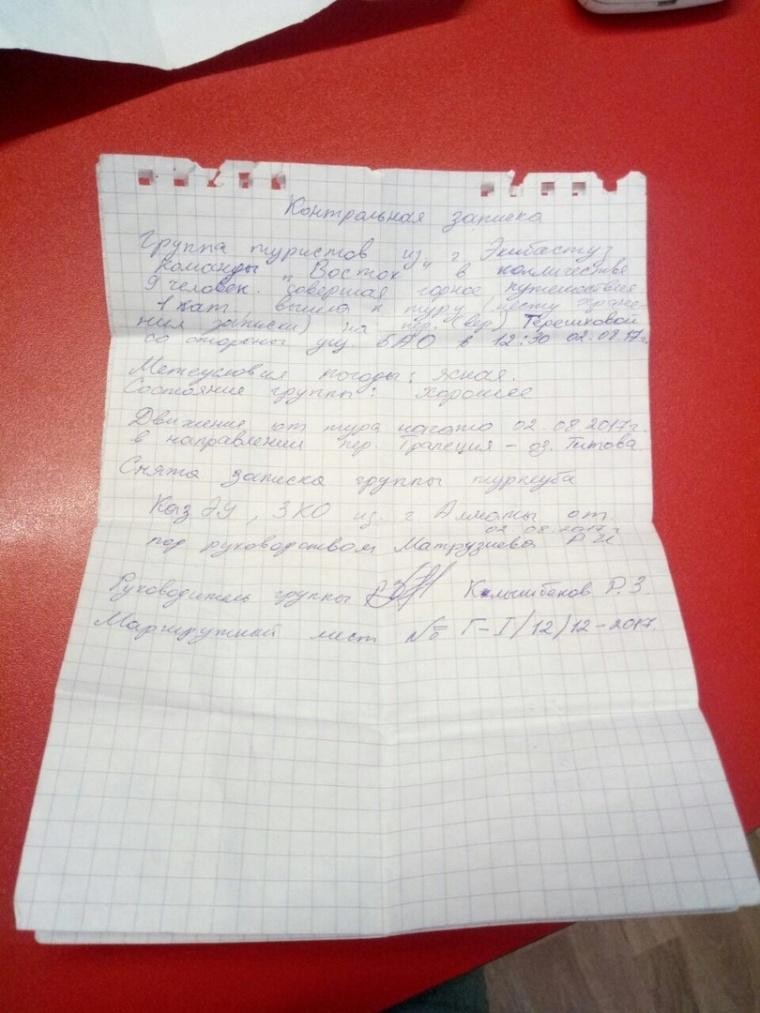 Контрольная записка
Группа туристов из г Экибастуз
команды "Восток" в колличестве
9 человек. совершая горное путешествие
1 кат. вышла к туру (месту хране-
ния записки) на пер. (вер) Терешковой
со стороны ущ. БАО в 12:30 02.08.17г.
Метеусловия погоды: ясная.
Состояние группы: хорошее
Движение от тура начато 02.08.2017г.
в направлении пер. Трапеция - оз. Титова
Снята записка группы турклуба
КазАУ, ЗКО из г Алматы от
02.08.2017г
под руководством
Руководитель группы Р.З.
Маршрутный лист № Г-I/12/12-2017.